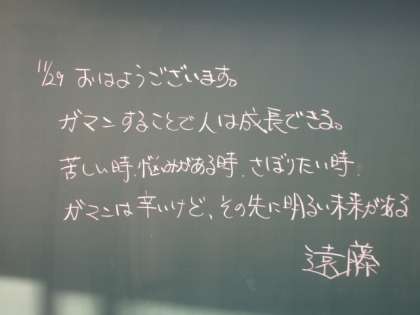 11/29 おはようございます。
ガマンすることで人は成長できる。
苦しい時、悩みがある時、さぼりたい時
ガマンは辛いけど、その先に明るい未来がある
遠藤